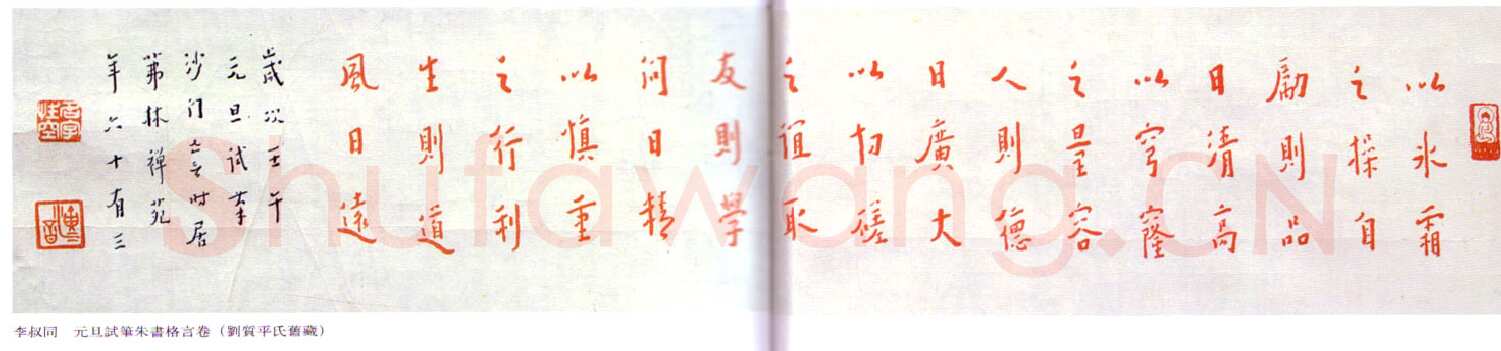 以冰霜
之操自
勵則品
日清高
以穹窿
之量容
人則德
日廣大
以切磋
之誼取
友則學
問日精
以慎重
之行利
生則道
風日遠
歲次壬午
元旦試筆
沙門亡言时居
茀林禪苑
年六十有三
名字性空
Shufawang.CN
李叔同 元旦試筆朱書格言卷（劉質平氏舊藏）